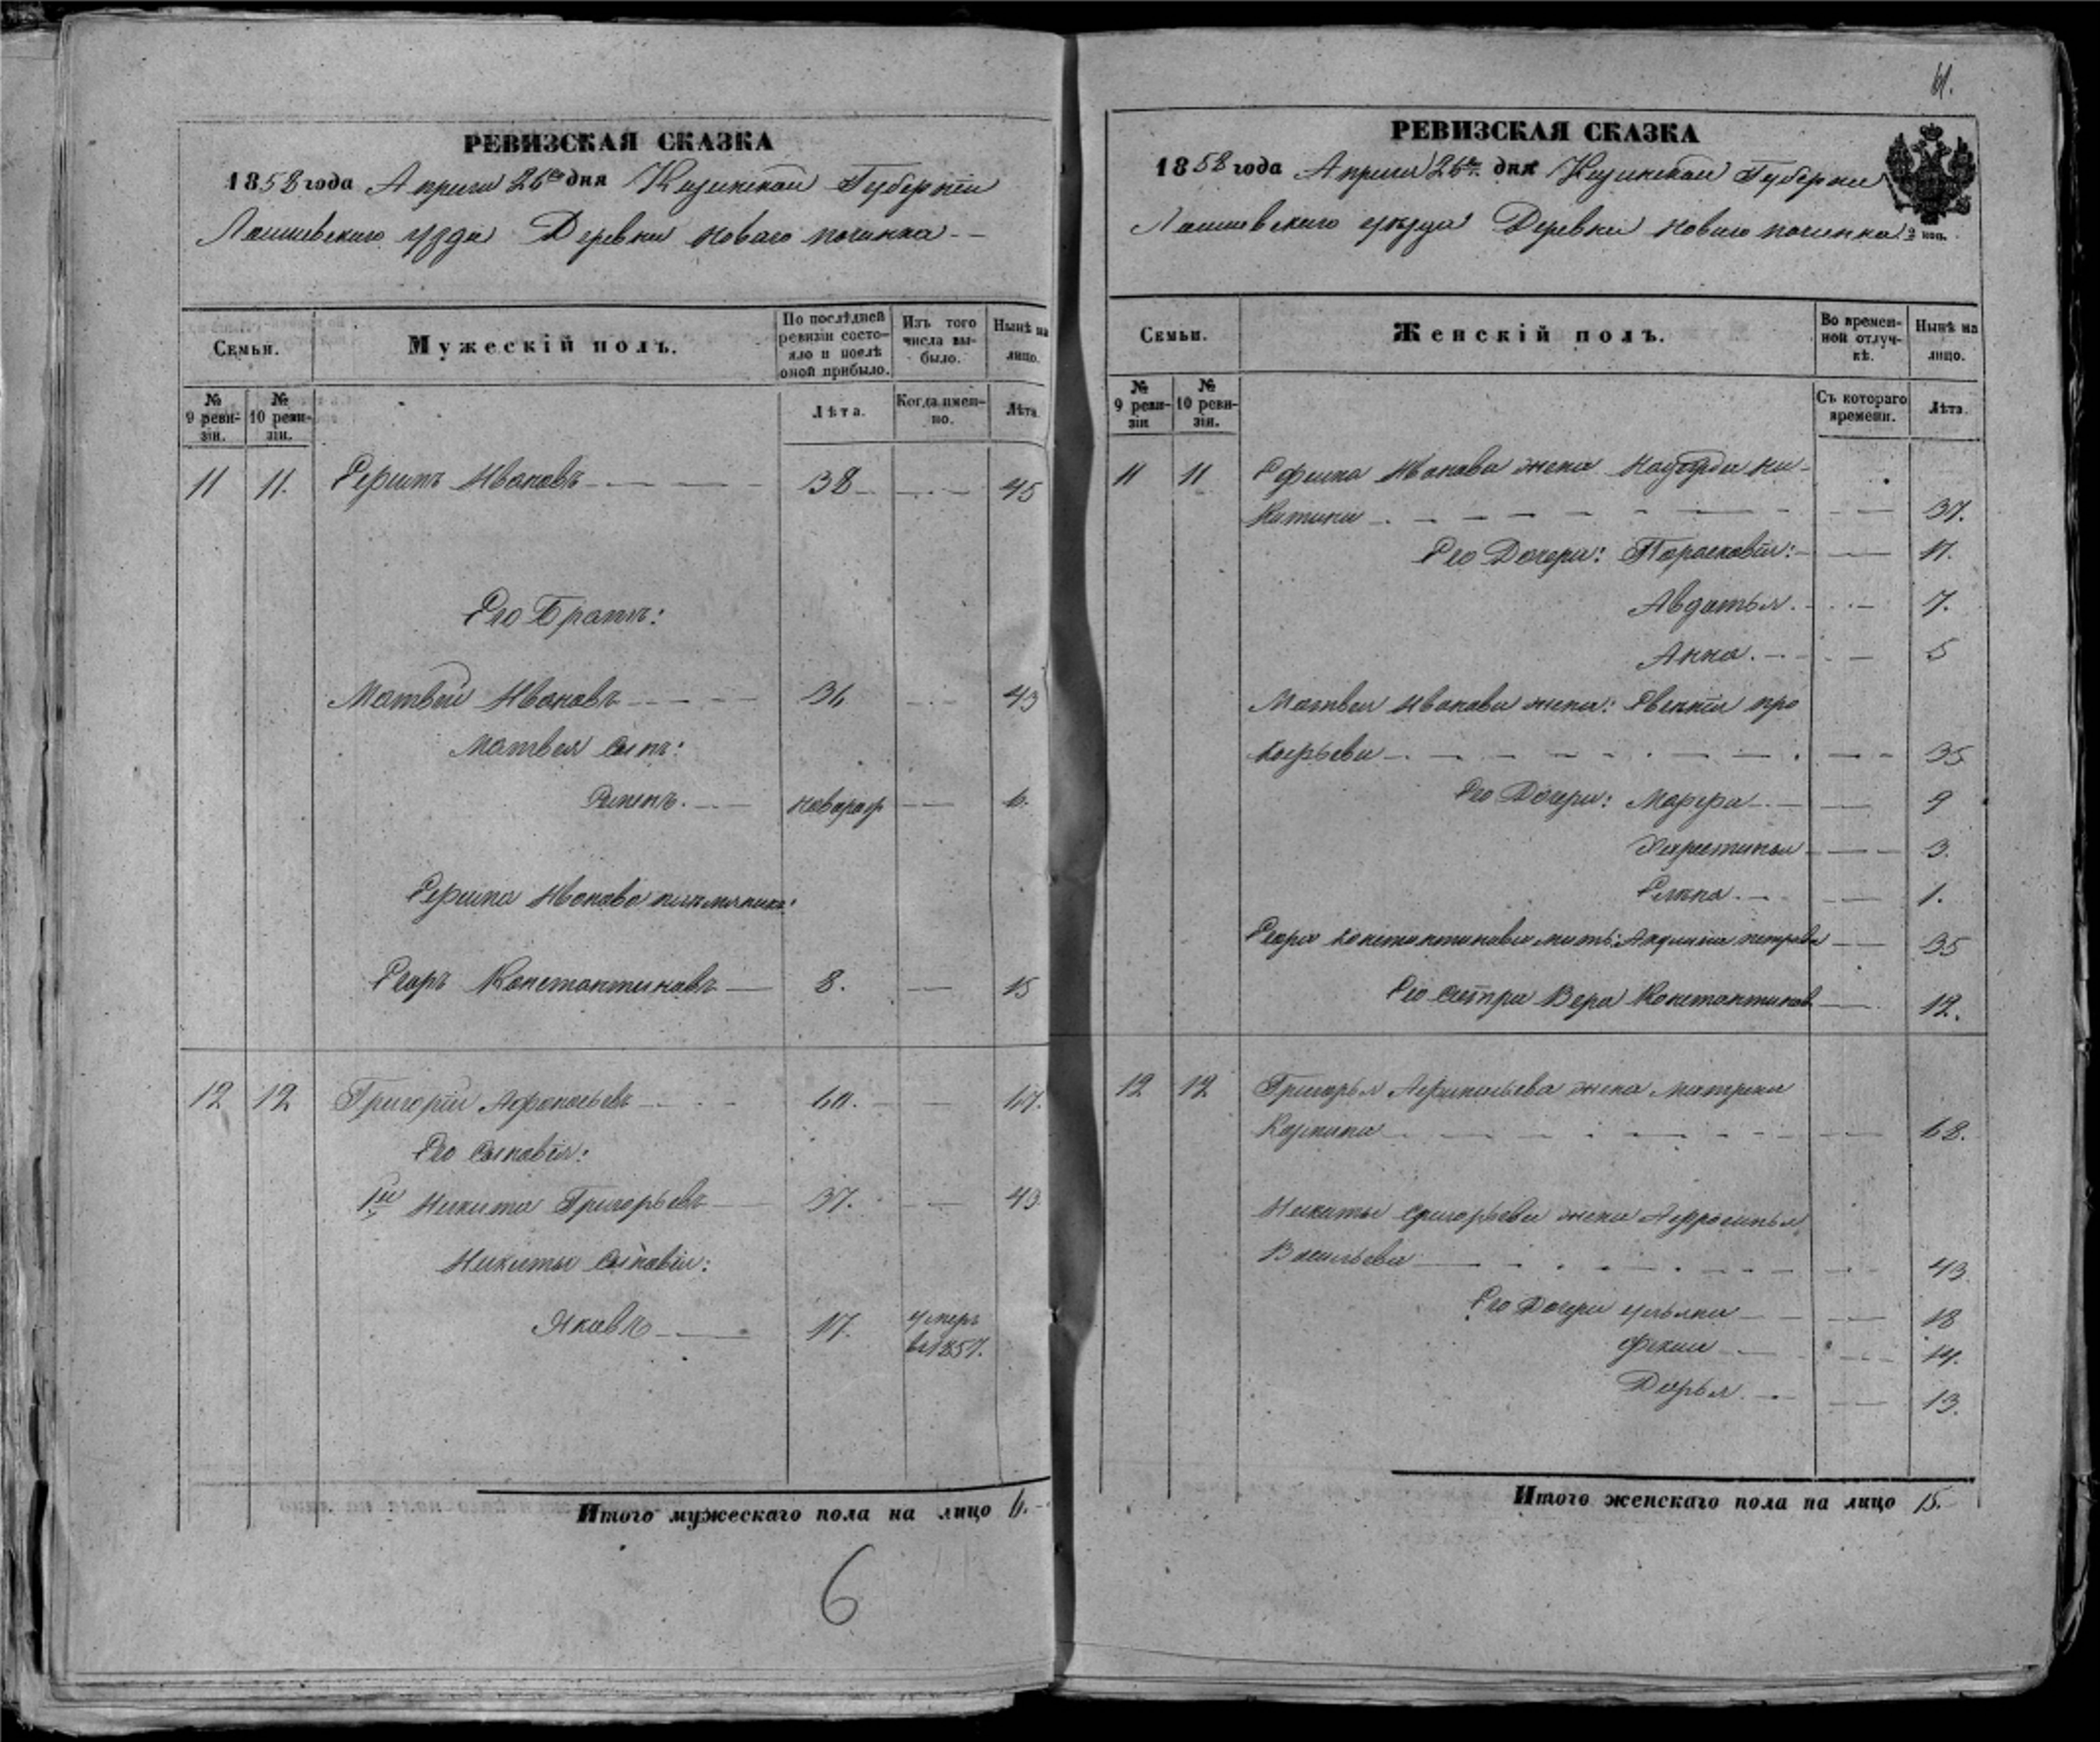 РЕВИЗСКАЯ СКАЗКА
1858 года Апреля 26го дня Казанской Губернiи
Лаишевскаго уезда Деревни Новаго починка
Семьи.
Мужескiй полъ.
По послѣдней ревизiи состо-
яло и послѣ оной прибыло.
Изъ того числа вы-
было.
Нынѣ на лицо.
№ 9 реви-
зiи.
№ 10 реви-
зiи.
Лѣта.
Когда имен-
но.
Лѣта
11 11. Ефимъ Ивановъ 38 45
Его Братъ:
Матвей Ивановъ 36 43
Матвея сынъ:
новорож 6.
Ефима Иванова племянникъ:
Егоръ Константиновъ 8. 15
12 12 Григорiй Афонасьевъ 60. 67.
Его сыновья:
1й Никита Григорьевъ 37. 43
Никиты сыновья:
Яковъ 17. умеръ
въ 1857.
Итого мужескаго пола на лицо 6.
6
61.
РЕВИЗСКАЯ СКАЗКА
1858 года Апреля 26го дня Казанской Губернiи
Лаишевскаго уезда Деревни Новаго починка
Семьи.
Женскiй полъ.
Во времен-
ной отлуч-
кѣ.
Нынѣ на лицо.
№ 9 реви-
зiи
№ 10 реви-
зiи.
Съ котораго времени.
Лѣта.
11 11 Ефима Иванова жена Надежда Ни-
китина 37.
Его Дочери: Парасковiя: 11.
Авдотья. 7.
Анна. 5
Матвея Иванова жена: Евгенiя про
кофьева 35
Его Дочери: Марфа 9
Харетинья 3.
Елена. 1.
Егора константинова мать: Акулина петрова 35
Его сестра Вера Константинов 12.
12 12 Григорья Афонасьева жена Матрена
Карпова 68.
Никиты григорьева жена Афросинья
Васильева 43
Его Дочери ульяна 18
Фекла 14.
Дарья. 13.
Итого женскаго пола на лицо 15.